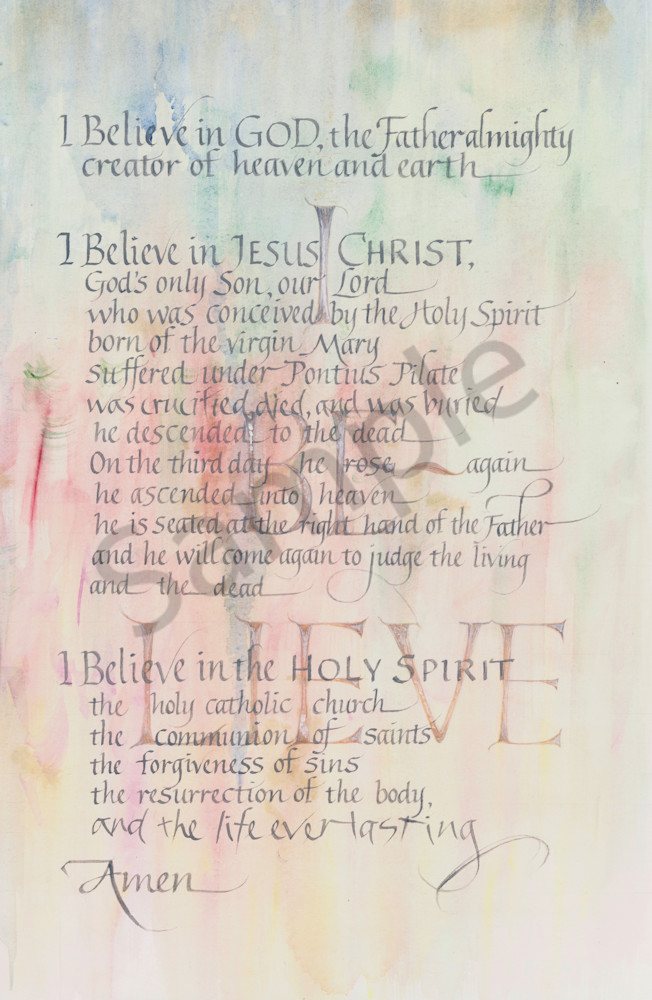 I Believe in GOD, the Father almighty
creator of heaven and earth
I Believe in JESUS CHRIST,
God's only Son, our Lord
who was conceived by the Holy Spirit
born of the virgin Mary
suffered under Pontius Pilate
was crucified, died, and was buried
he descended to the dead
On the third day he rose again
he ascended into heaven
he is seated at the right hand of the Father
and he will come again to judge the living
and the dead
I Believe in the HOLY SPIRIT
the holy catholic church
the communion of saints
the forgiveness of sins
the resurrection of the body,
and the life everlasting
Amen
I
BE
LIEVE
Sample